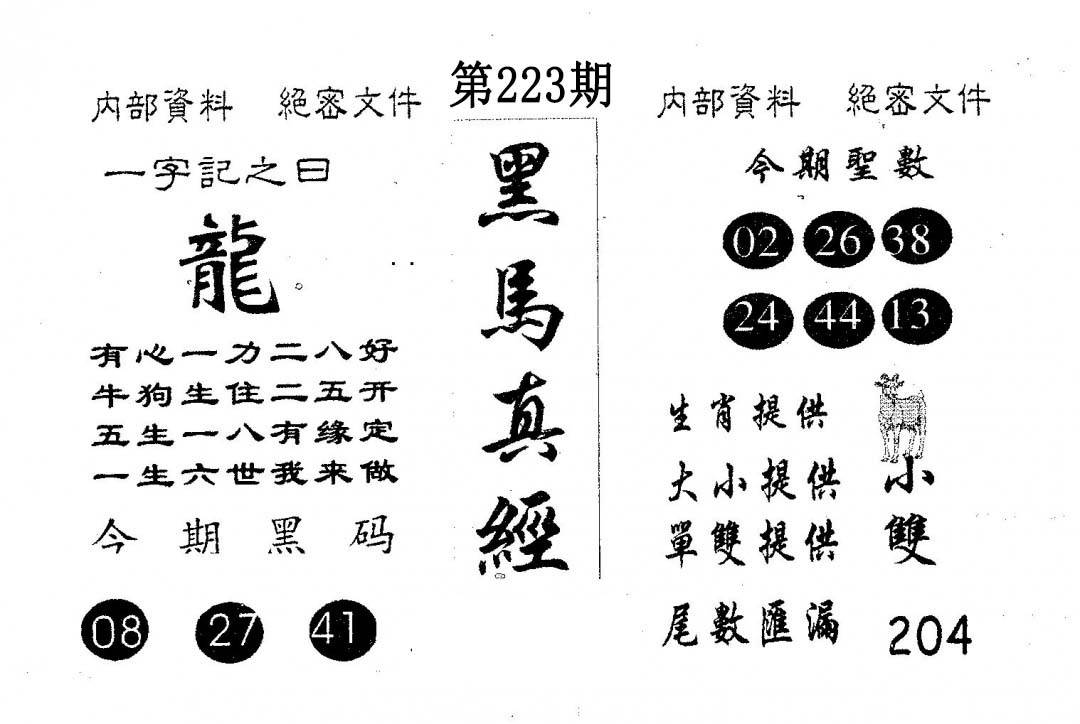 第223期
内部資料 絕密文件
一字記之曰
龍
有心一力二八好
牛狗生住二五开
五生一八有缘定
一生六世我来做
今期黑码
08 27 41
黑馬真經
内部資料 絕密文件
今期聖數
02 26 38
24 44 13
生肖提供
大小提供 小
單雙提供 雙
尾數匯漏 204